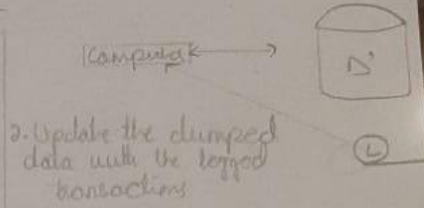 Computer
D'
L
2. Update the dumped
data with the logged
transactions